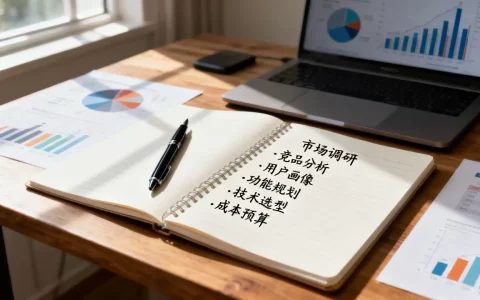 市场调研
·竞品分析
·用户画像
·功能规划
·技术选型
·成本预算